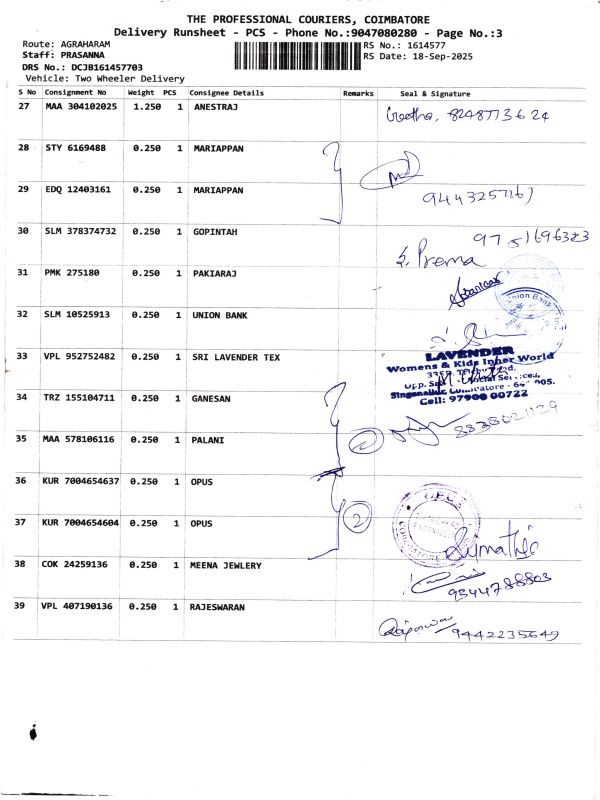 THE PROFESSIONAL COURIERS, COIMBATORE
Delivery Runsheet - PCS - Phone No.:9047080280 - Page No.:3
Route: AGRAHARAM RS No.: 1614577
Staff: PRASANNA RS Date: 18-Sep-2025
DRS No.: DCJB161457703
Vehicle: Two Wheeler Delivery
S No Consignment No Weight PCS Consignee Details Remarks Seal & Signature
27 MAA 304102025 1.250 1 ANESTRAJ
28 STY 6169488 0.250 1 MARIAPPAN
29 EDQ 12403161 0.250 1 MARIAPPAN
30 SLM 378374732 0.250 1 GOPINTAH
S. Prema
31 PMK 275180 0.250 1 PAKIARAJ
32 SLM 10525913 0.250 1 UNION BANK
Union Bank
33 VPL 952752482 0.250 1 SRI LAVENDER TEX
LAVENDER
Womens & Kids Inner World
Cell: 97900 00722
34 TRZ 155104711 0.250 1 GANESAN
35 MAA 578106116 0.250 1 PALANI
2
8838021129
36 KUR 7004654637 0.250 1 OPUS
2
37 KUR 7004654604 0.250 1 OPUS
Sumathi
38 COK 24259136 0.250 1 MEENA JEWLERY
9344788803
39 VPL 407190136 0.250 1 RAJESWARAN
9442235649